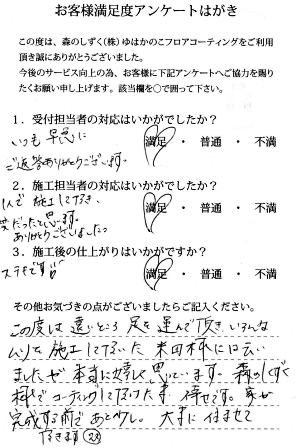 お客様満足度アンケートはがき
この度は、森のしずく(株) ゆはかのこフロアコーティングをご利用
頂き誠にありがとうございました。
今後のサービス向上の為、お客様に下記アンケートへご協力を賜り
たくお願い申し上げます。該当欄を○で囲って下さい。
1．受付担当者の対応はいかがでしたか？
いつも早急に
ご返答ありがとうございます。
満足 ・ 普通 ・ 不満
2．施工担当者の対応はいかがでしたか？
1人で施工して頂き、
大変だったと思います。
ありがとうございました。
満足 ・ 普通 ・ 不満
3．施工後の仕上がりはいかがですか？
ステキです
満足 ・ 普通 ・ 不満
その他お気づきの点がございましたらご記入ください。
この度は 遠いところ 足を運んで頂き いろんな
ムリを施工して頂いた
ましたが 本当に嬉しく思っています。森のしずく
コーティングして頂けた事 幸せです。家が
完成する前で あと少し。大事に住ませて
頂きます